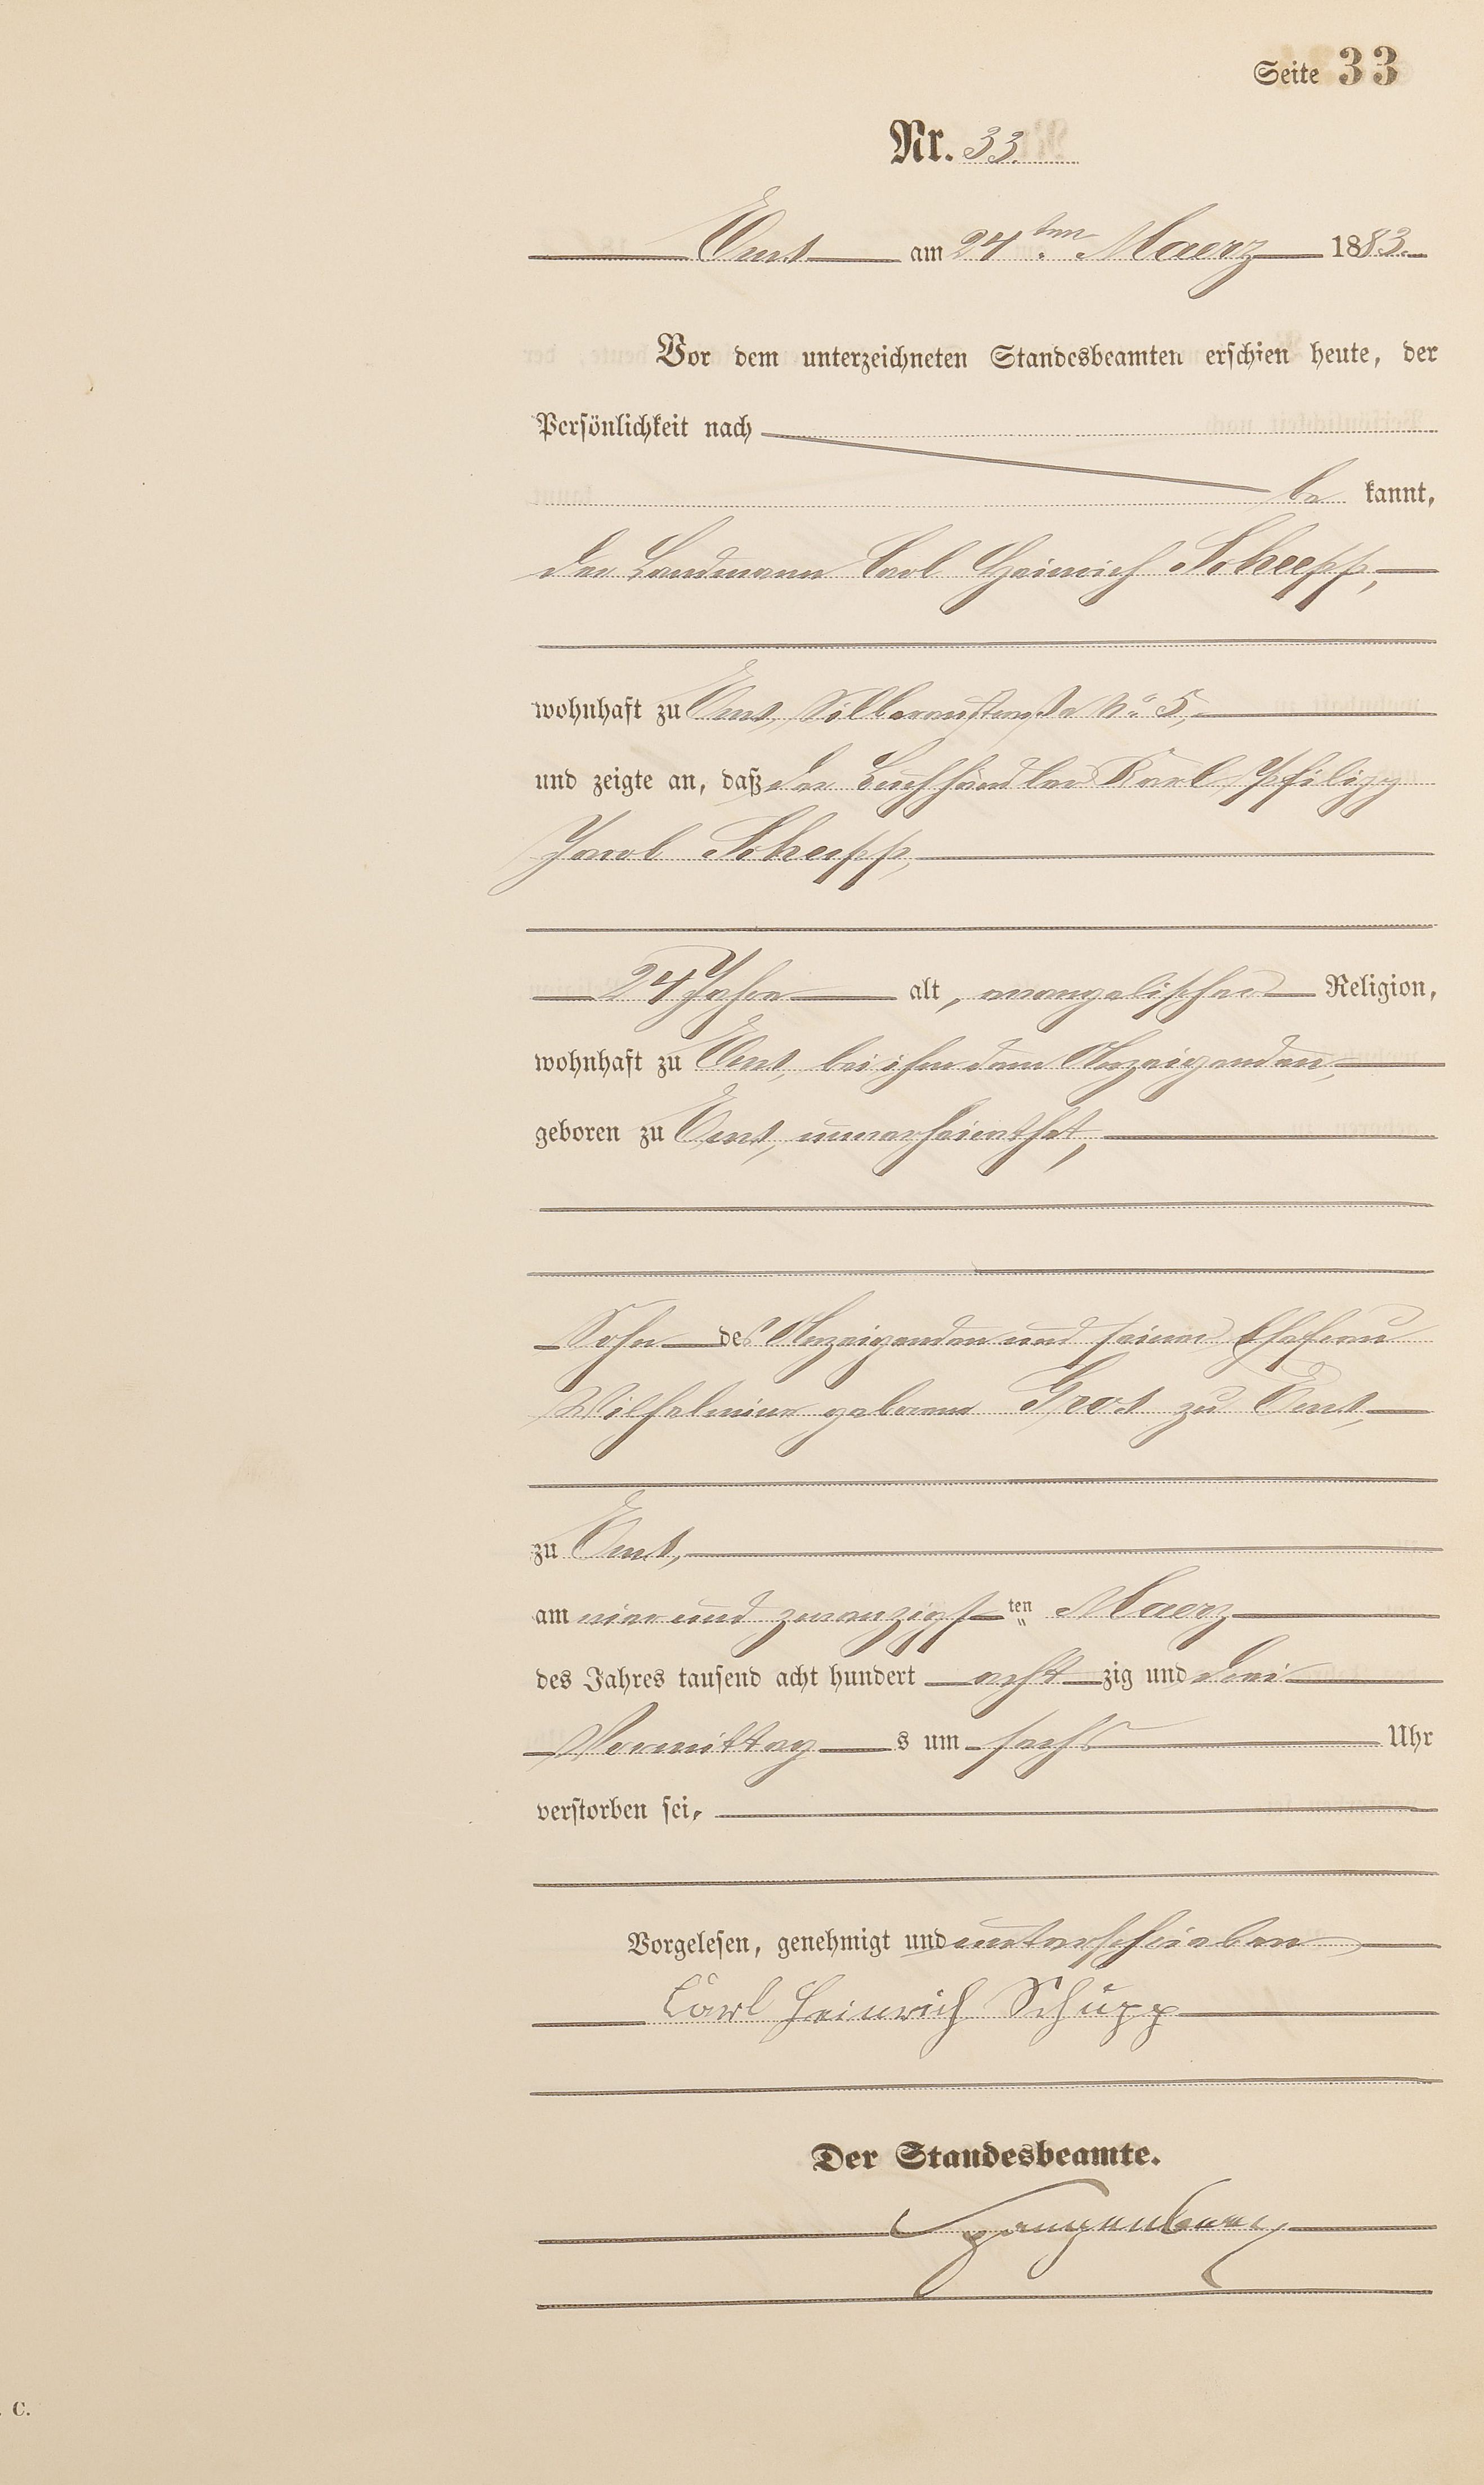 Seite 33
Nr. 33.
Ems am 24ten Maerz 1883.
Vor dem unterzeichneten Standesbeamten erschien heute, der
Persönlichkeit nach
be kannt,
der Landmann Carl Heinrich Schupp,
wohnhaft zu Ems, Silberaustraße No 5,
und zeigte an, daß der Buchhändler Karl Philipp
Jacob Schupp,
24 Jahre alt, evangelischer Religion,
wohnhaft zu Ems, bei ihm dem Anzeigenden,
geboren zu Ems, unverheirathet,
Sohn des Anzeigenden und seiner Ehefrau
Wilhelmine geborene Gros zu Ems,
zu Ems,
am vier und zwanzigsten Maerz
des Jahres tausend acht hundert acht zig und drei
Vormittag s um sechs Uhr
verstorben sei,
Vorgelesen, genehmigt und unterschrieben
Carl Heinrich Schupp
Der Standesbeamte.
Spangenberg
. C.